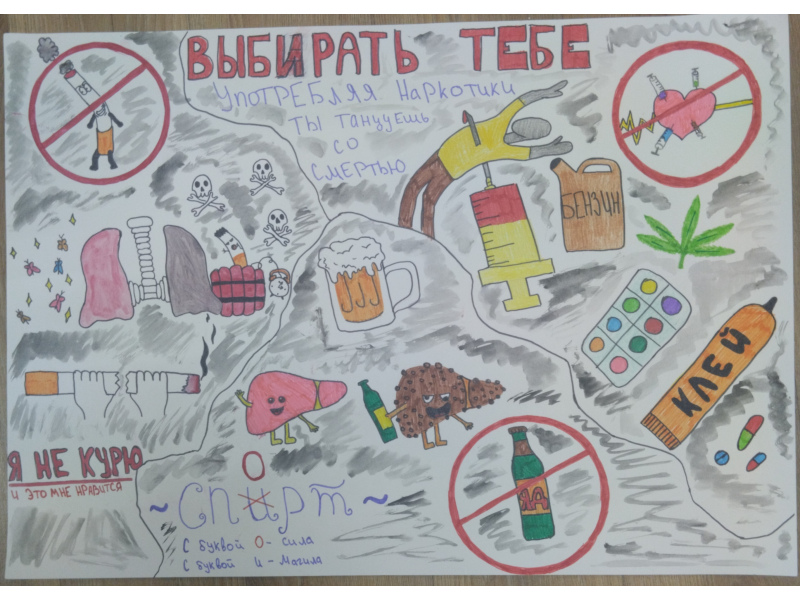 ВЫБИРАТЬ ТЕБЕ
УПОТРЕБЛЯЯ НАРКОТИКИ
ТЫ ТАНЦУЕШЬ
СО
СМЕРТЬЮ
БЕНЗИН
КЛЕЙ
Я НЕ КУРЮ
И ЭТО МНЕ НРАВИТСЯ
О
СПИРТ
С буквой О - сила
С буквой И - Магила
ЯД